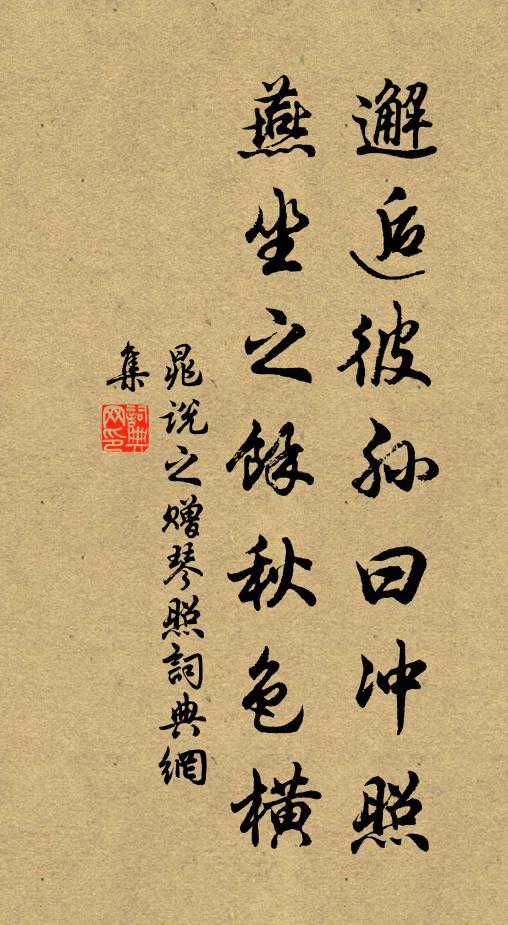 邂逅彼孙曰冲照
燕坐之餘秋色橫
晁说之赠琴照詞典網
集
詞典网印